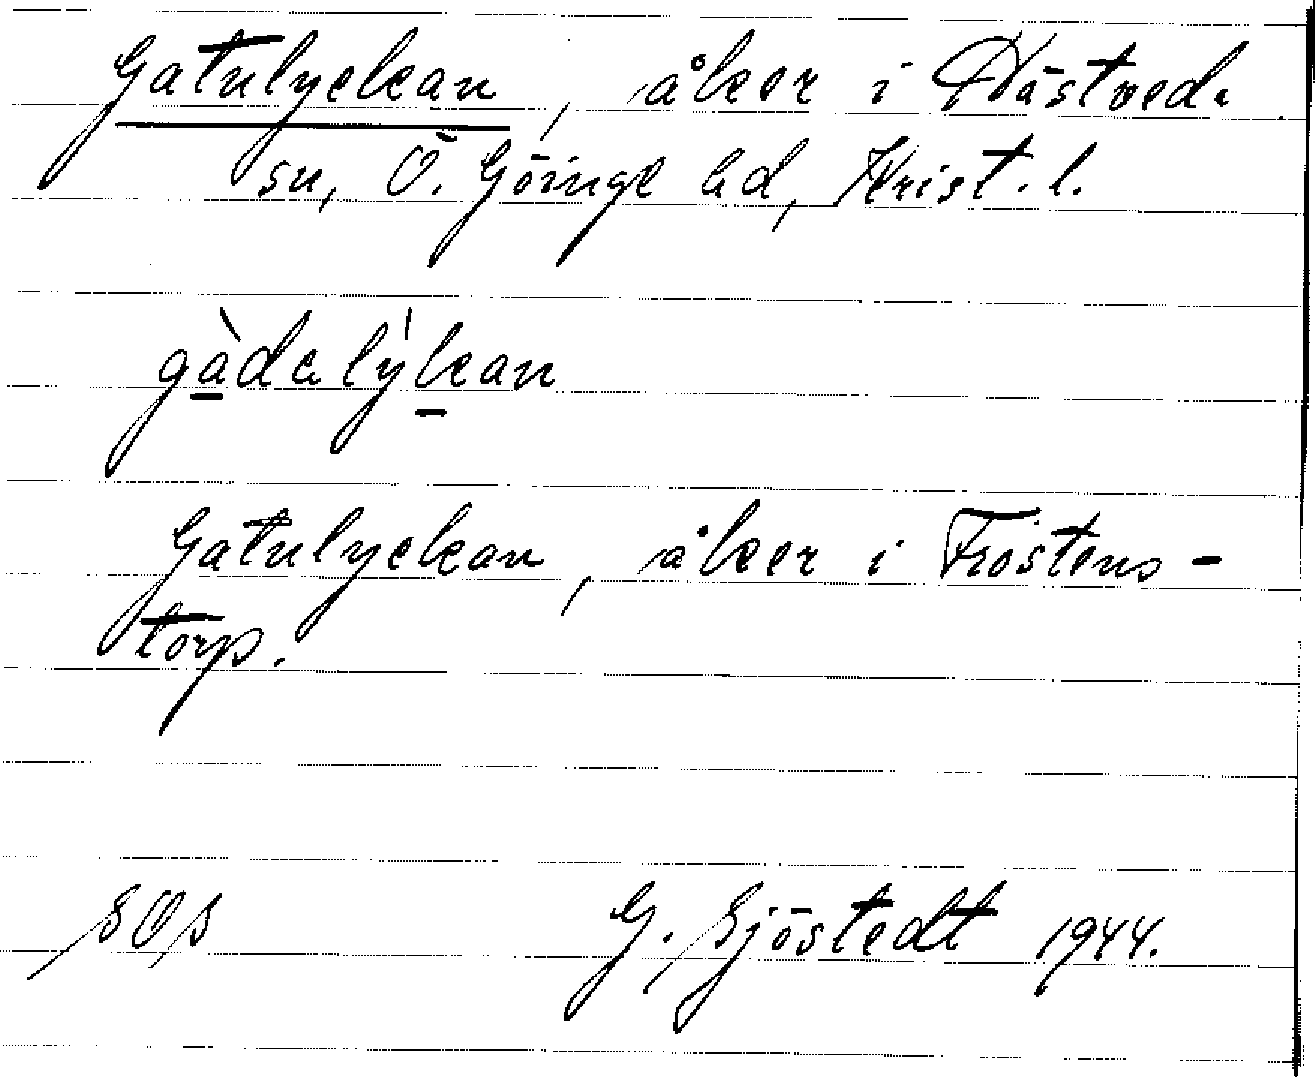 Gatulyckan, åker i Hästveda
sn, Ö. Göinge hd, Krist. l.
gàdalỳkan
Gatulyckan, åker i Frostens-
torp.
G. Sjöstedt 1944.